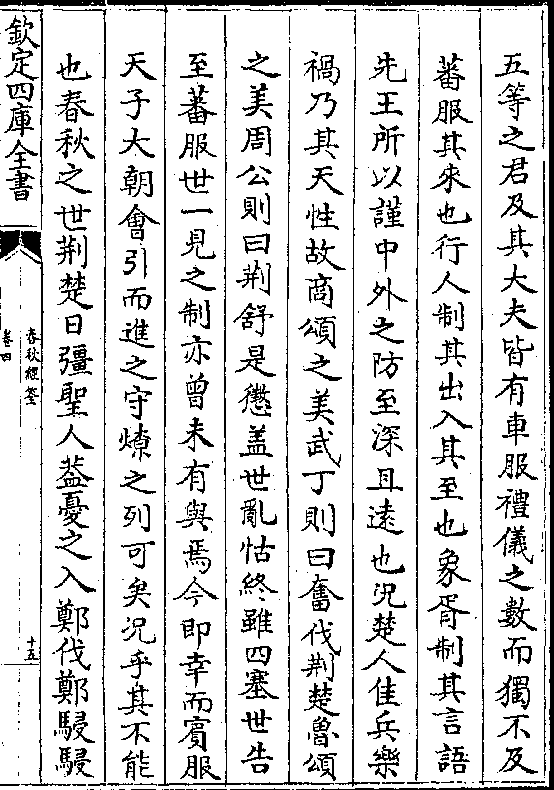 五等之君及其大夫皆有車服禮儀之數而獨不及
蕃服其來也行人制其出入其至也象胥制其言語
先王所以謹中外之防至深且遠也況楚人佳兵樂
禍乃其天性故商頌之美武丁則曰奮伐荆楚魯頌
之美周公則曰荆舒是懲盖世亂怙終雖四塞世告
至蕃服世一見之制亦曾未有與焉今即幸而賓服
天子大朝會引而進之守燎之列可矣況乎其不能
也春秋之世荆楚日彊聖人葢憂之入鄭伐鄭駸駸
欽定四庫全書
春秋經筌
卷四
十五